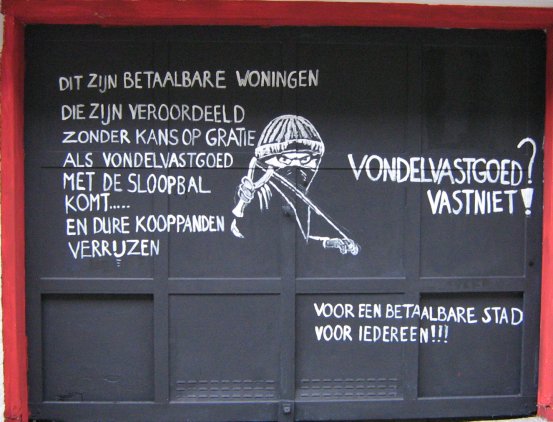 DIT ZIJN BETAALBARE WONINGEN
DIE ZIJN VEROORDEELD
ZONDER KANS OP GRATIE
ALS VONDELVASTGOED
MET DE SLOOPBAL
KOMT.....
EN DURE KOOPPANDEN
VERRIJZEN
VONDELVASTGOED?
VASTNIET!
VOOR EEN BETAALBARE STAD
VOOR IEDEREEN!!!